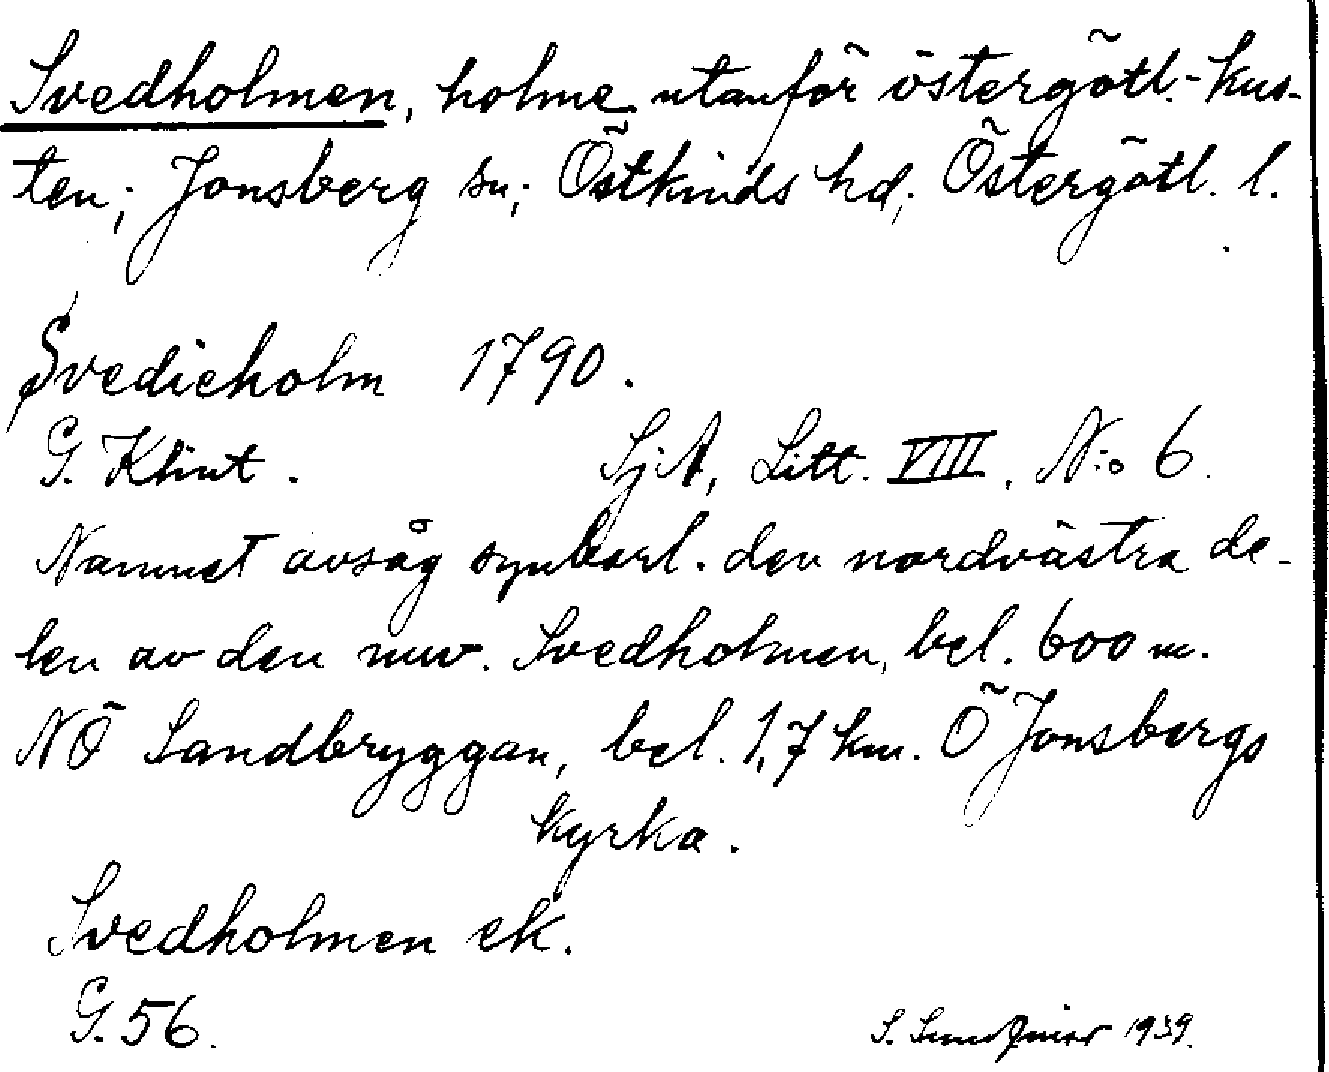 Svedholmen, holme utanför östergötl.-kus-
ten; Jonsberg sn; Östkinds hd; Östergötl. l.
Svedieholm 1790.
G. Klint. SjA, Litt. VIII, N:o 6.
Namnet avsåg synbarl. den nordvästra de-
len av den nuv. Svedholmen, bel. 600 m.
NÖ Sandbryggan, bel. 1,7 km. Ö Jonsbergs
kyrka.
Svedholmen ek.
G. 56.
S. 1939.